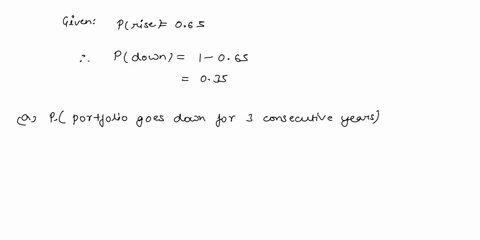 Given: P(rise)= 0.65
∴ P(down) = 1-0.65
= 0.35
(a) P( portfolio goes down for 3 consecutive years)